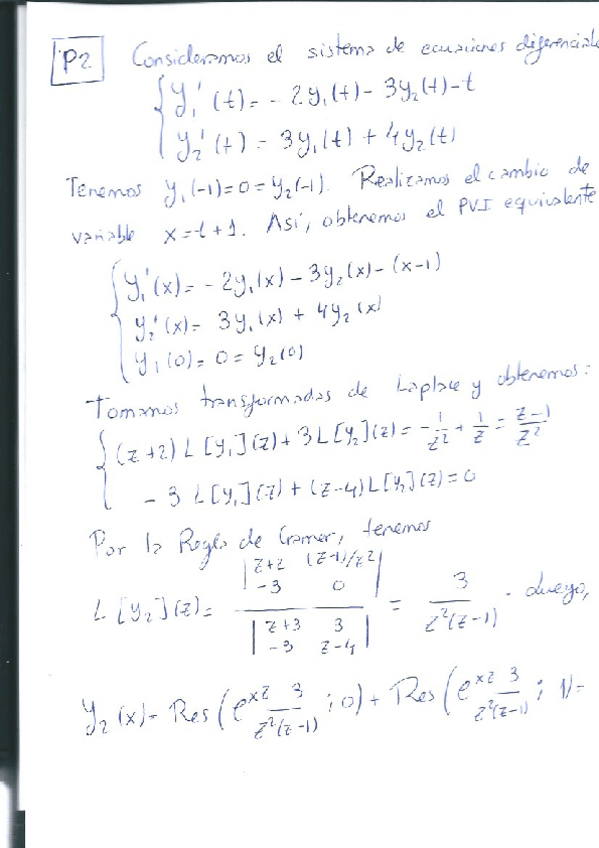 P2 Consideramos el sistema de ecuaciones diferenciale
{ y₁'(t) = - 2y₁(t) - 3y₂(t) - t
{ y₂'(t) - 3y₁(t) + 4y₂(t)
Tenemos y₁(-1)=0=y₂(-1). Realizamos el cambio de
variable x=t+1. Así, obtenemos el PVI equivalente
{ y₁'(x)= - 2y₁(x) - 3y₂(x) - (x-1)
{ y₂'(x)= 3y₁(x) + 4y₂(x)
{ y₁(0)=0=y₂(0)
Tomamos transformadas de Laplace y obtenemos:
{ (z+2) L[y₁](z) + 3L[y₂](z) = -1/z² + 1/z = (z-1)/z²
{ - 3 L[y₁](z) + (z-4)L[y₂](z) = 0
Por la Regla de Cramer, tenemos
L[y₂](z) = |z+2 (z-1)/z² ; -3 0| / |z+3 3 ; -3 z-4| = 3/(z²(z-1)) . Luego,
y₂(x) = Res(e^{xz} 3/(z²(z-1)) ; 0) + Res(e^{xz} 3/(z²(z-1)) ; 1) =